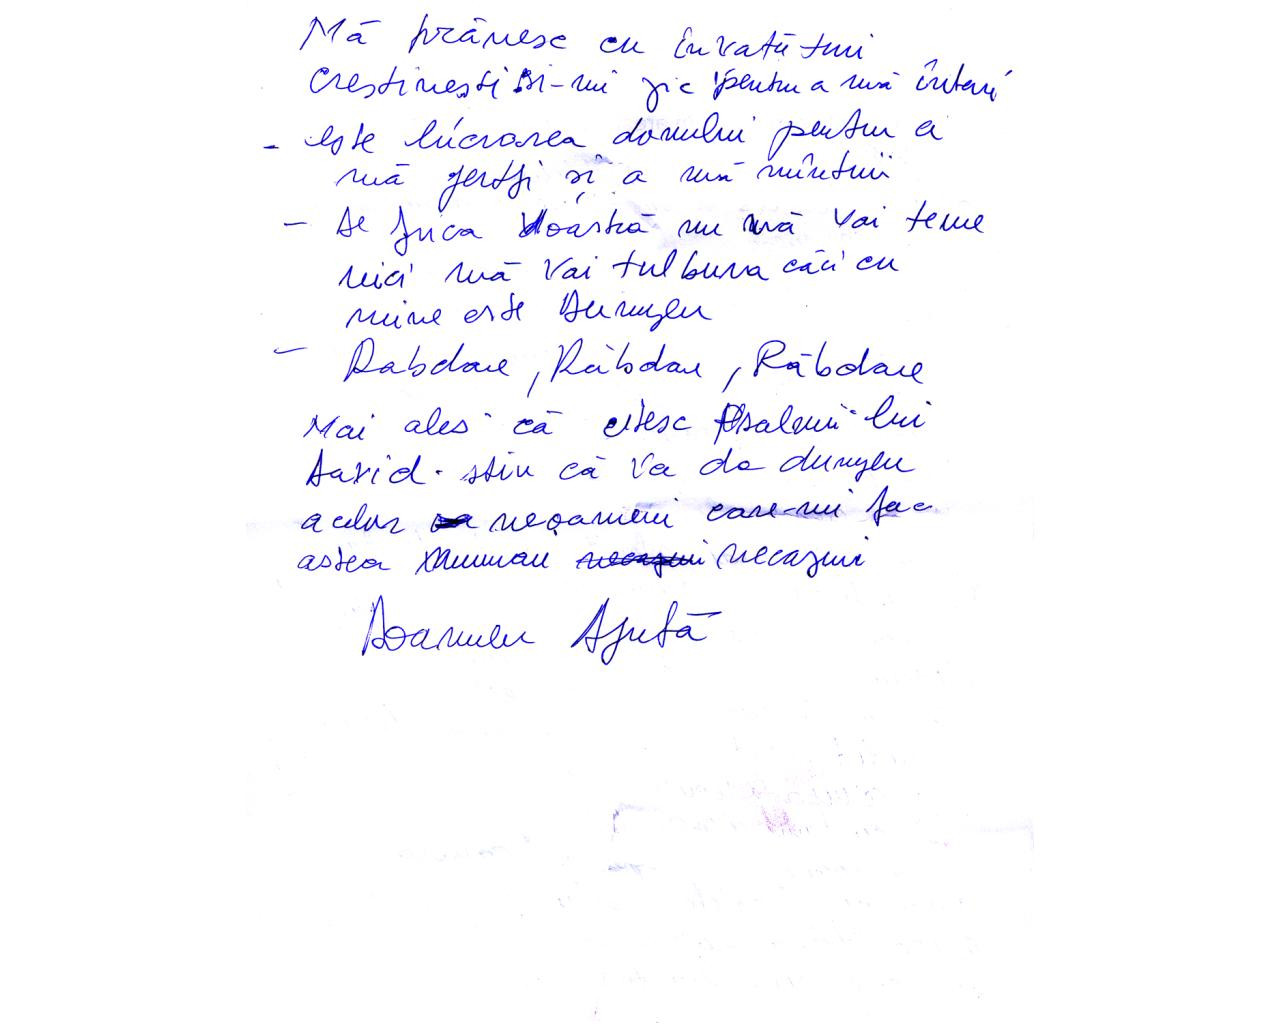 Mă hrănesc cu învatături
crestinesti si-mi zic pentru a mă întări
- este lucrarea domului pentru a
mă jertfi și a mă mîntui
- De frica voastră nu mă voi teme
nici mă voi tulbura căci cu
mine este Dumnzeu
- Rabdare, Răbdare, Răbdare
Mai ales că citesc Psalmii lui
David. stiu că va da dumnzeu
acelor neoameni care-mi fac
astea necazuri
Doamne Ajută